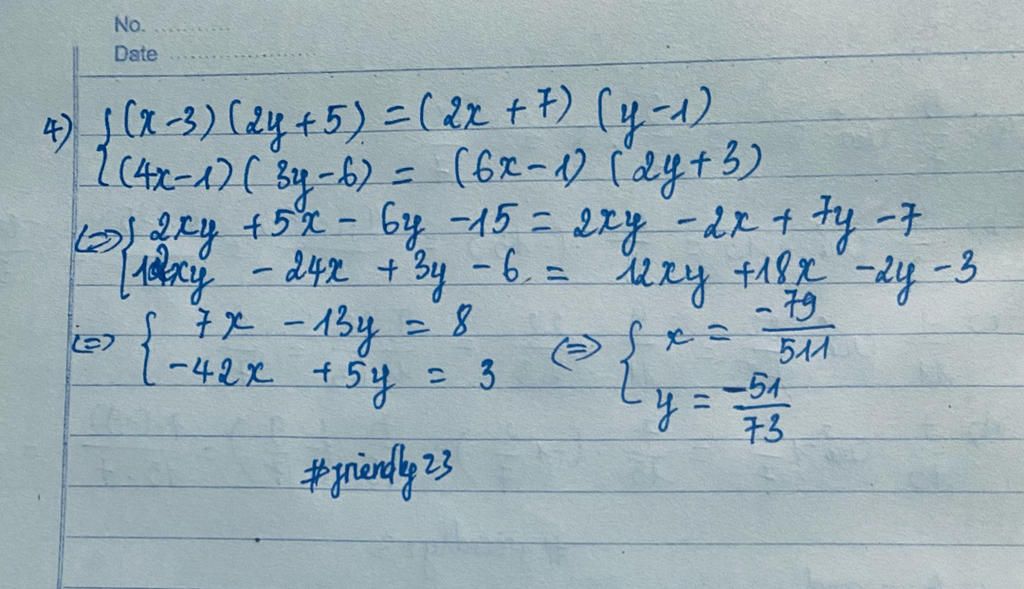 No. ............
Date ........................
4) { (x-3)(2y+5) = (2x+7)(y-1)
(4x-1)(3y-6) = (6x-1)(2y+3)
(=) { 2xy + 5x - 6y - 15 = 2xy - 2x + 7y - 7
12xy - 24x + 3y - 6 = 12xy + 18x - 2y - 3
(=) { 7x - 13y = 8 (=) { x = -79/511
-42x + 5y = 3 y = -51/73
#friendly23